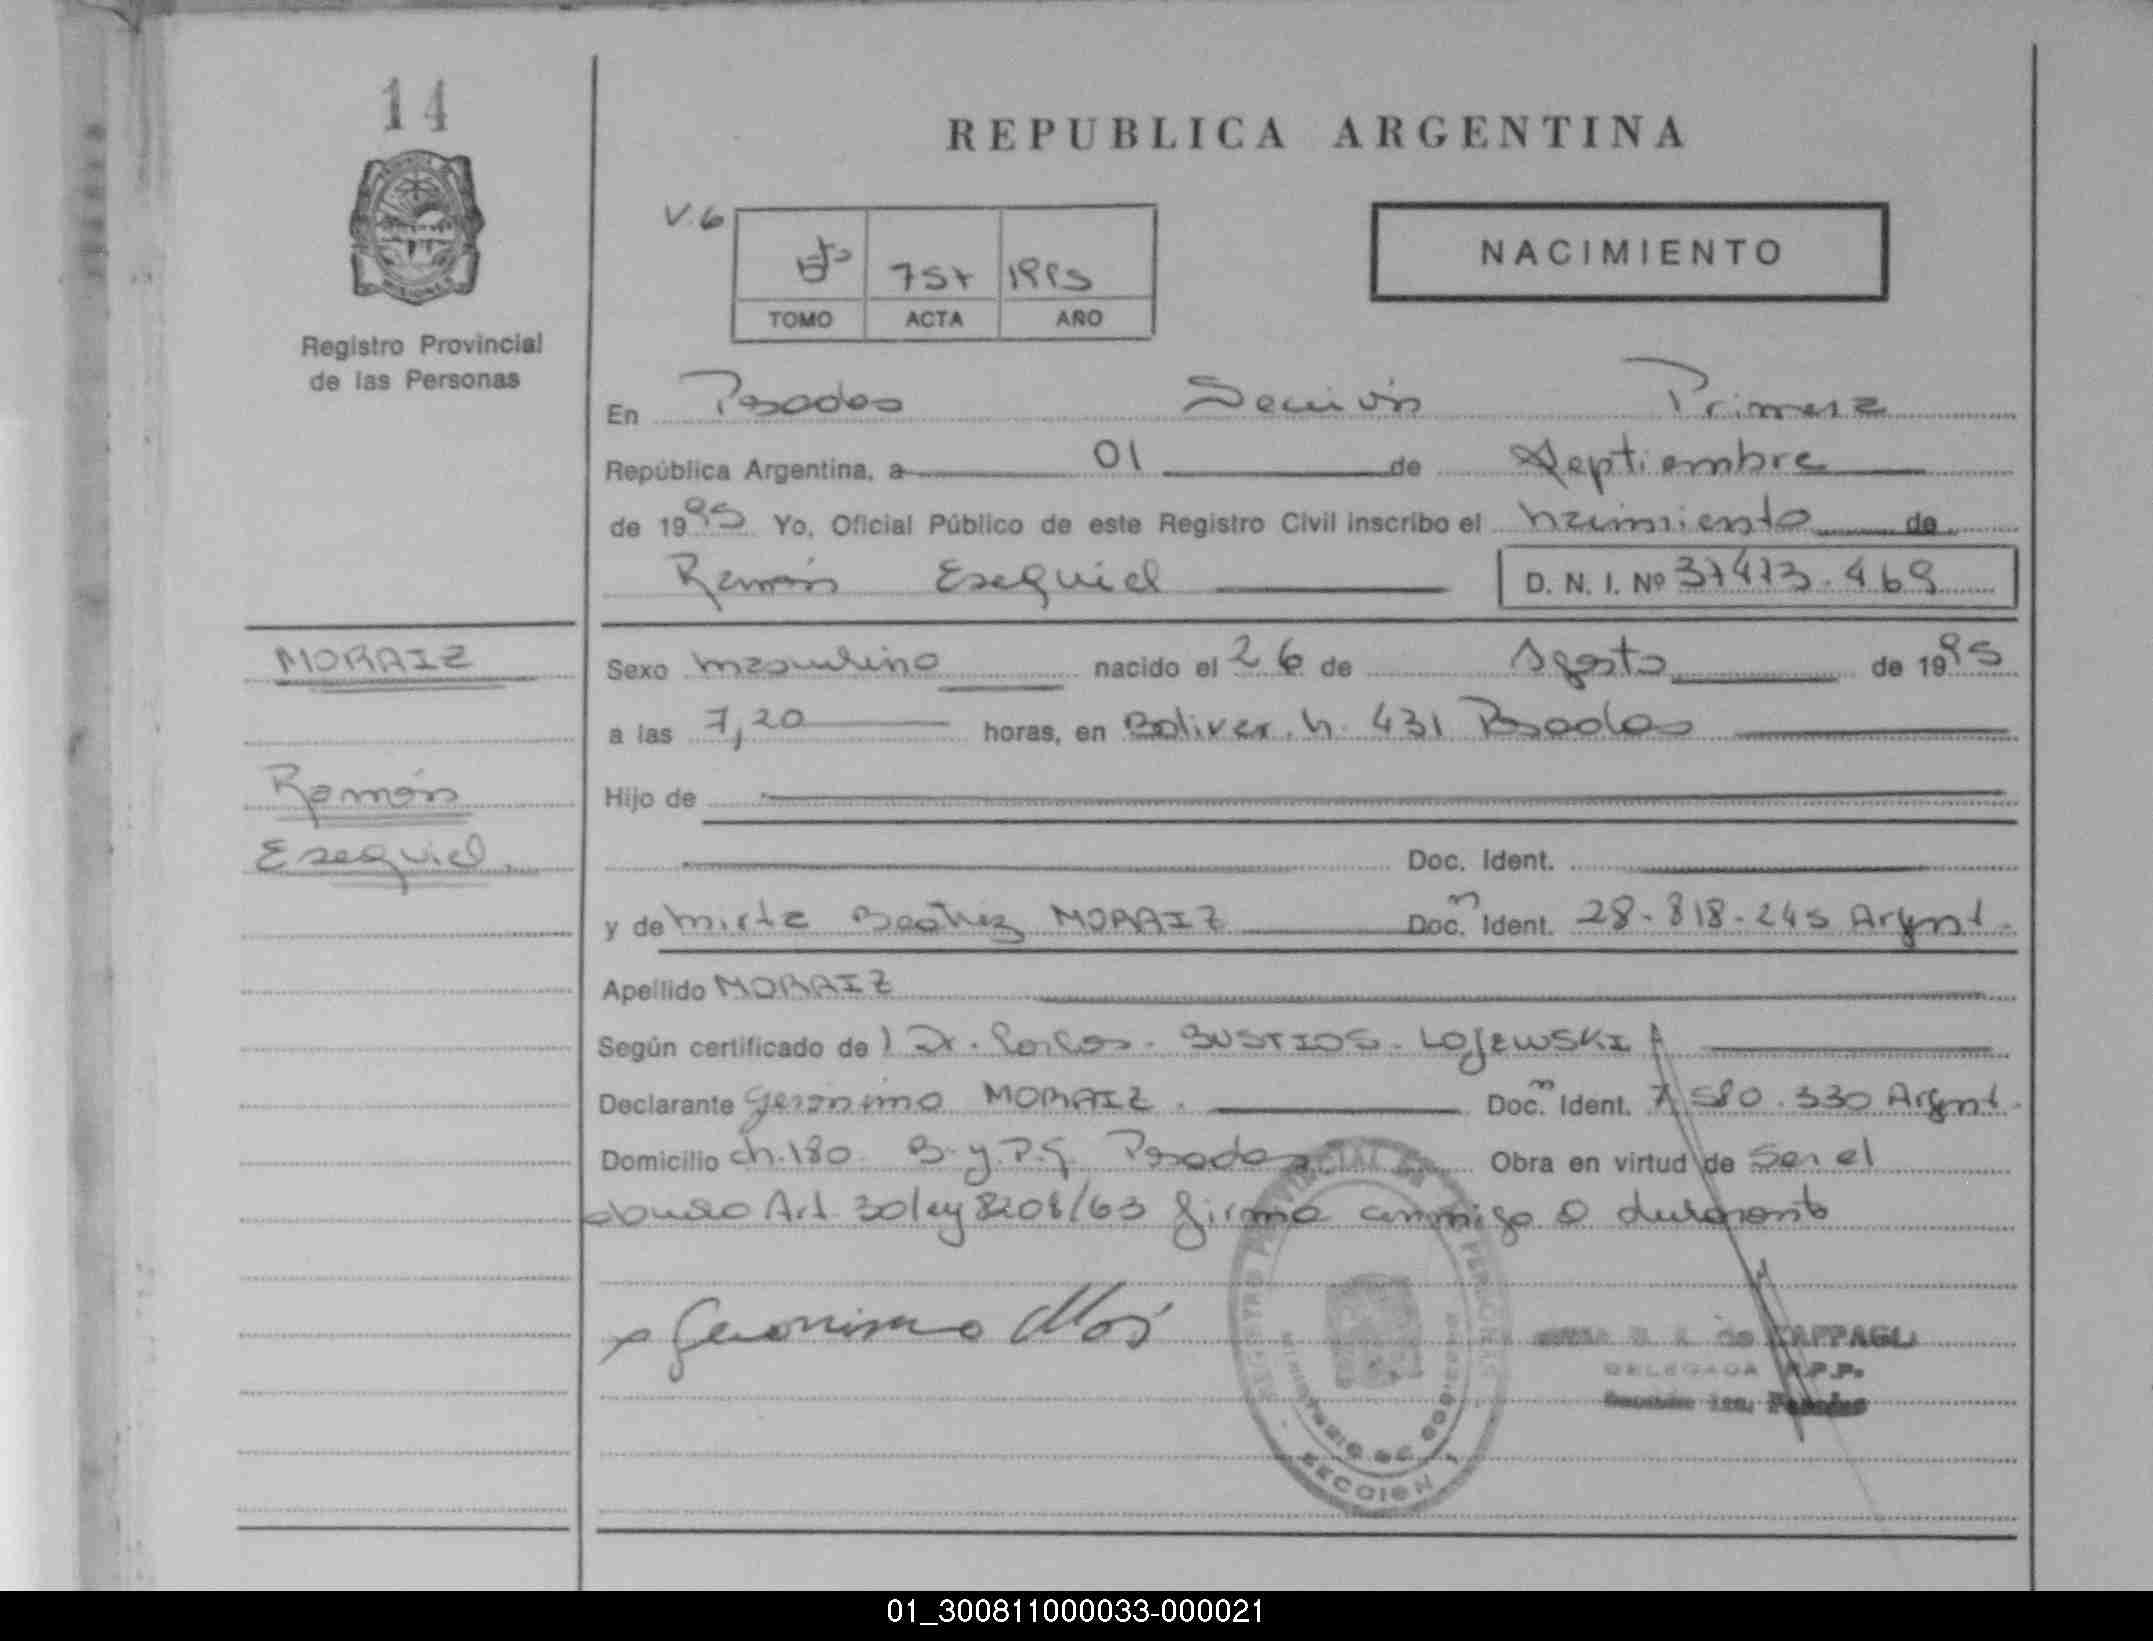 14
REPUBLICA ARGENTINA
V.6
1995
TOMO ACTA AÑO
NACIMIENTO
Registro Provincial
de las Personas
En Posadas Sección Primera
República Argentina, a 01 de Septiembre
de 1995 Yo, Oficial Público de este Registro Civil inscribo el nacimiento de
Ramón Esequiel D. N. I. Nº 37473.469
MORAIZ
Ramón
Esequiel
Sexo masculino nacido el 26 de Agosto de 1995
a las 7,20 horas, en Bolivar. n. 431 Posadas
Hijo de
Doc. Ident.
y de Mirta Beatriz MORAIZ Doc. Ident. 28.818.245 Argent.
Apellido MORAIZ
Según certificado del Dr. Carlos. BUSTIOS. LOJEWSKI
Declarante Gerónimo MORAIZ. Doc. Ident. 7.580.330 Argent.
Domicilio ch.180 Posadas Obra en virtud de Ser el
abuelo Art. 30 ley 8204/63 firma conmigo el declarante
x Geronimo
REGISTRO PROVINCIAL DE LAS PERSONAS
MINISTERIO DE GOBIERNO
SECCION 1
de ZAPPAGLI
DELEGADA R.P.P.
Sección 1ra. Posadas
01_300811000033-000021